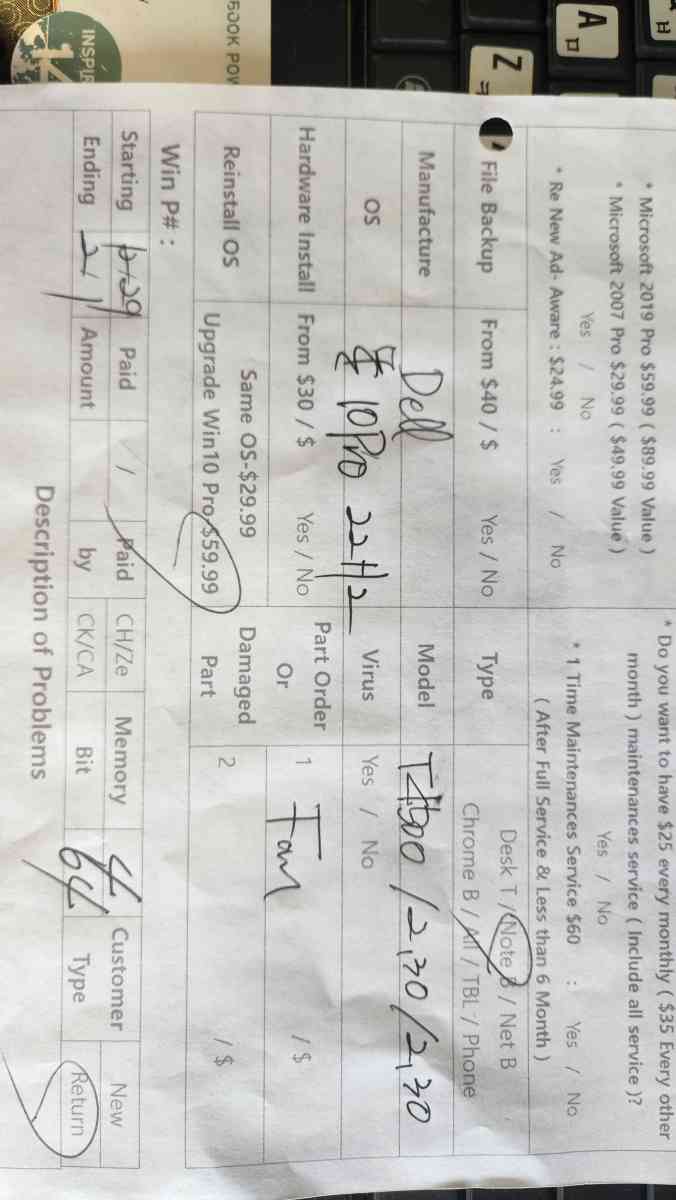 * Do you want to have $25 every monthly ( $35 Every other
month ) maintenances service ( Include all service )?
Yes / No
* Microsoft 2019 Pro $59.99 ( $89.99 Value )
* Microsoft 2007 Pro $29.99 ( $49.99 Value )
Yes / No
* Re New Ad- Aware : $24.99 : Yes / No
* 1 Time Maintenances Service $60 : Yes / No
( After Full Service & Less than 6 Month )
File Backup From $40 / $ Yes / No Type Desk T / Note B / Net B
Chrome B / All / TBL / Phone
Manufacture Dell Model T4500 / 2,30 / 2,30
OS 10 Pro 22H2 Virus Yes / No
Hardware Install From $30 / $ Yes / No Part Order
Or
Damaged
Part
1 Fan / $
2 / $
Reinstall OS Same OS-$29.99
Upgrade Win10 Pro $59.99
Win P# :
Starting 12/29 Paid / Paid CH/Ze Memory 4 Customer New
Ending 2/1 Amount by CK/CA Bit 64 Type Return
Description of Problems
INSPIR
A
ㅁ
Z
ㅋ